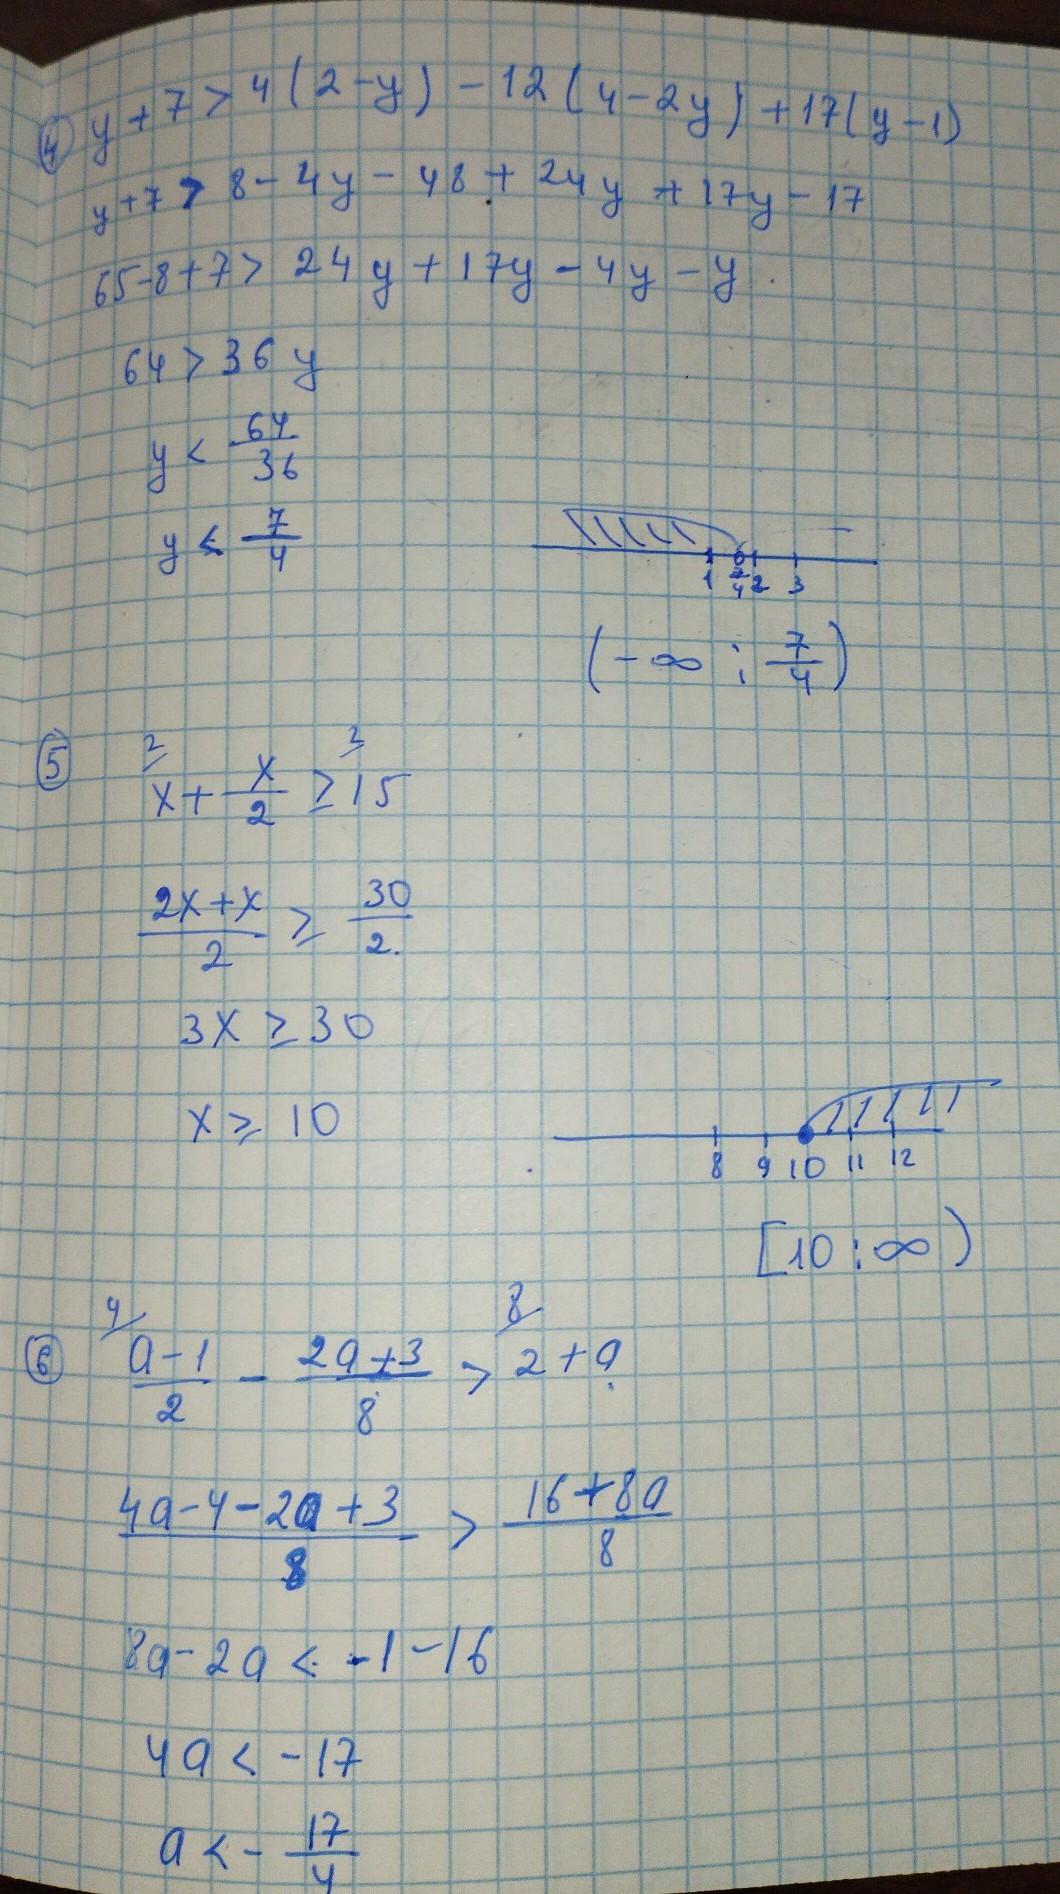 ④ y + 7 > 4(2 - y) - 12(4 - 2y) + 17(y - 1)
y + 7 > 8 - 4y - 48 + 24y + 17y - 17
65 - 8 + 7 > 24y + 17y - 4y - y
64 > 36y
y < 64/36
y < 7/4
1 7/4 2 3
(-∞ ; 7/4)
⑤ 2/ 2/
x + x/2 ≥ 15
(2x + x)/2 ≥ 30/2
3x ≥ 30
x ≥ 10
8 9 10 11 12
[10 ; ∞)
4/ 8/
⑥ (a - 1)/2 - (2a + 3)/8 > 2 + a
(4a - 4 - 2a + 3)/8 > (16 + 8a)/8
8a - 2a < -1 - 16
4a < -17
a < - 17/4